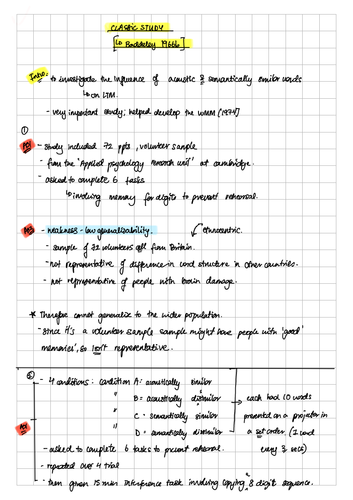 CLASSIC STUDY
↳ Baddeley 1966b
Intro: → to investigate the influence of acoustic & semantically similar words
↳ on LTM.
- very important study; helped develop the WMM (1974)
①
AO1 - study included 72 ppts, volunteer sample
- from the 'Applied psychology research unit' at cambridge.
- asked to complete 6 tasks
↳ involving memory for digits to prevent rehearsal.
AO3 - weakness - low generalisability. ↙ ethnocentric.
- sample of 72 volunteers all from Britain.
- not representative of difference in word structure in other countries.
- not representative of people with brain damage.
* Therefore cannot generalise to the wider population.
- since it's a volunteer sample sample might have people with 'good'
memories', so isn't representative.
② - 4 conditions: condition A: acoustically similar
" B = acoustically dissimilar → each had 10 words
" C = semantically similar presented on a projector in
AO1 " D = semantically dissimilar a set order (1 word
- asked to complete 6 tasks to prevent rehearsal. every 3 secs)
- repeated over 4 trial
- then given 15 min interference task involving copying 8 digit sequence.